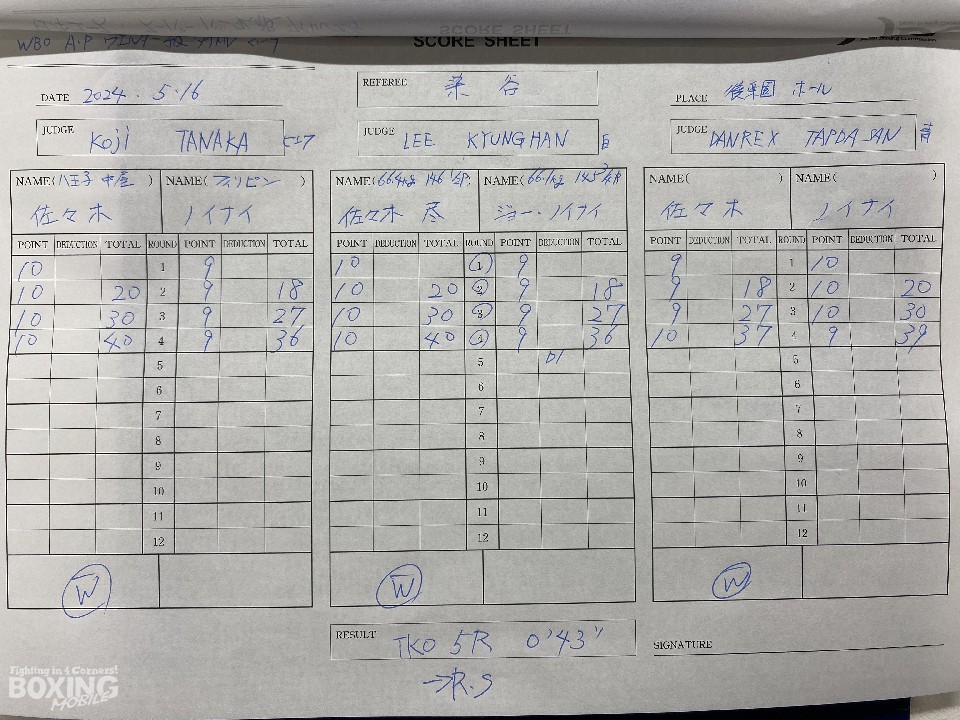 SCORE SHEET
WBO A.P
DATE 2024. 5.16
REFEREE 染谷
PLACE 後楽園 ホール
JUDGE Koji TANAKA ピンク
JUDGE LEE KYUNGHAN 白
JUDGE DANREX TAPDASAN 青
NAME(八王子中屋) NAME(フィリピン)
佐々木 ノイナイ
NAME(66.4kg 146 NAME(66.1kg 145
佐々木 尽 ジョー・ノイナイ
NAME( ) NAME( )
佐々木 ノイナイ
POINT DEDUCTION TOTAL ROUND POINT DEDUCTION TOTAL
10 1 9
10 20 2 9 18
10 30 3 9 27
10 40 4 9 36
5
6
7
8
9
10
11
12
W
POINT DEDUCTION TOTAL ROUND POINT DEDUCTION TOTAL
10 1 9
10 20 2 9 18
10 30 3 9 27
10 40 4 9 36
5 D1
6
7
8
9
10
11
12
W
POINT DEDUCTION TOTAL ROUND POINT DEDUCTION TOTAL
9 1 10
9 18 2 10 20
9 27 3 10 30
10 37 4 9 39
5
6
7
8
9
10
11
12
W
RESULT TKO 5R 0'43"
→R.S
SIGNATURE
Fighting in 4 Corners!
BOXING
MOBILE